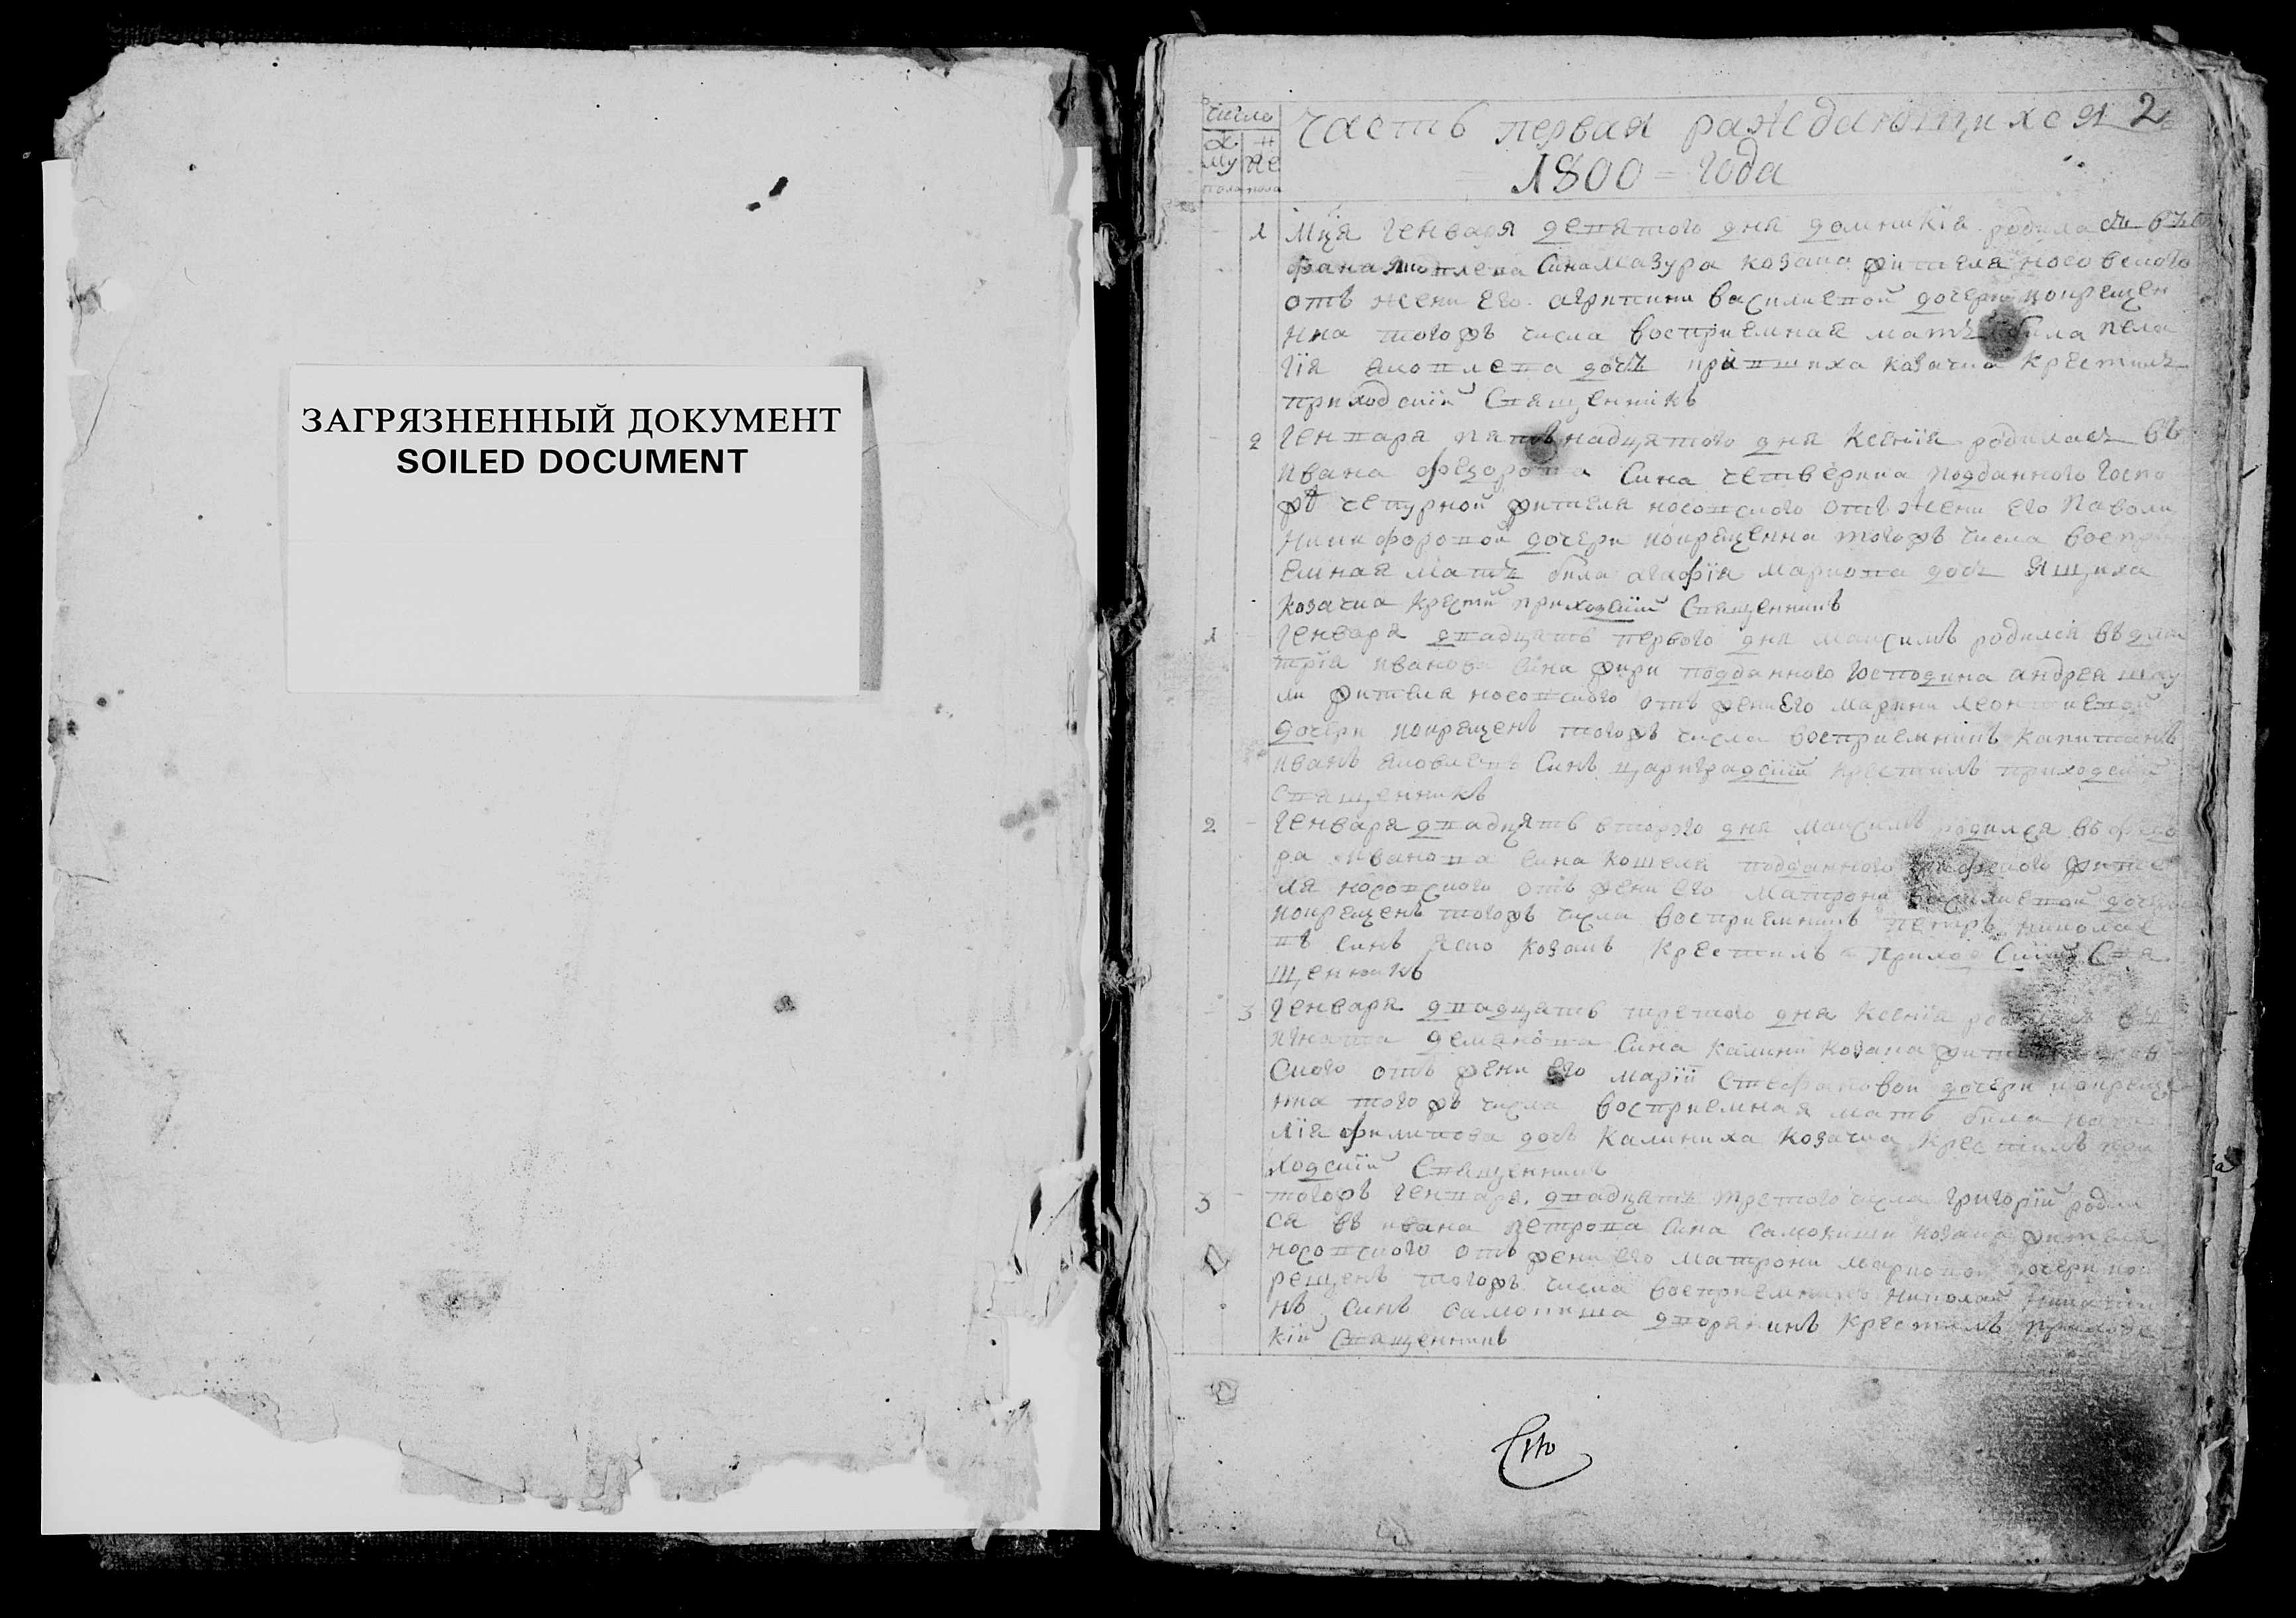 ЗАГРЯЗНЕННЫЙ ДОКУМЕНТ
SOILED DOCUMENT
число
му же
пола пола
Часть первая раждающихся 2
1800 = года
1 Мця генваря девятого дня домникіа родила
Яковлева сина Мазура козака жителя носовского
отъ жени его агрипини василиевой дочери кокрещен
нна тогожъ числа восприемная мать била пела
гія яковлева дочь козачка крестилъ
приходскій священникъ
2 генваря пятнадцятого дня Ксенія родилась въ
ивана федорова сина четверика подданного госпо
жѣ жителя носовского отъ жени его Павли
никифоровой дочери кокрещенна тогожъ числа воспри
емная мать била агафія маркова дочь Ящиха
козачка крестил приходскій священникъ
1 генваря двадцять первого дня максимъ родился въ дми
трія иванова сина подданного господина андрея
жителя носовского отъ жени его марини леонтиевой
дочери кокрещенъ тогожъ числа восприемникъ капитанъ
иванъ яковлевъ синъ цариградскій крестилъ приходскій
священникъ
2 генваря двадцять второго дня максимъ родился въ федо
ра иванова сина кошеля подданного жите
ля носовского отъ жени его матрони василиевой дочери
кокрещенъ тогожъ числа восприемникъ петръ николае
въ синъ козакъ крестилъ приходскій свя
щенникъ
3 генваря двадцять третого дня Ксенія въ
игната демянова сина калини козака
ского отъ жени его маріи стефановой дочери кокреще
нна тогожъ числа восприемная мать била ната
лія филипова дочь Калиниха козачка крестилъ при
ходскій священникъ
3 тогожъ генваря двадцять третого числа григорій родил
ся въ ивана петрова сина самокиши козака жителя
носовского отъ жени его матрони марковой дочери кок
рещенъ тогожъ числа восприемникъ николай
нъ синъ самокиша дворянинъ крестилъ приходс
кій священникъ